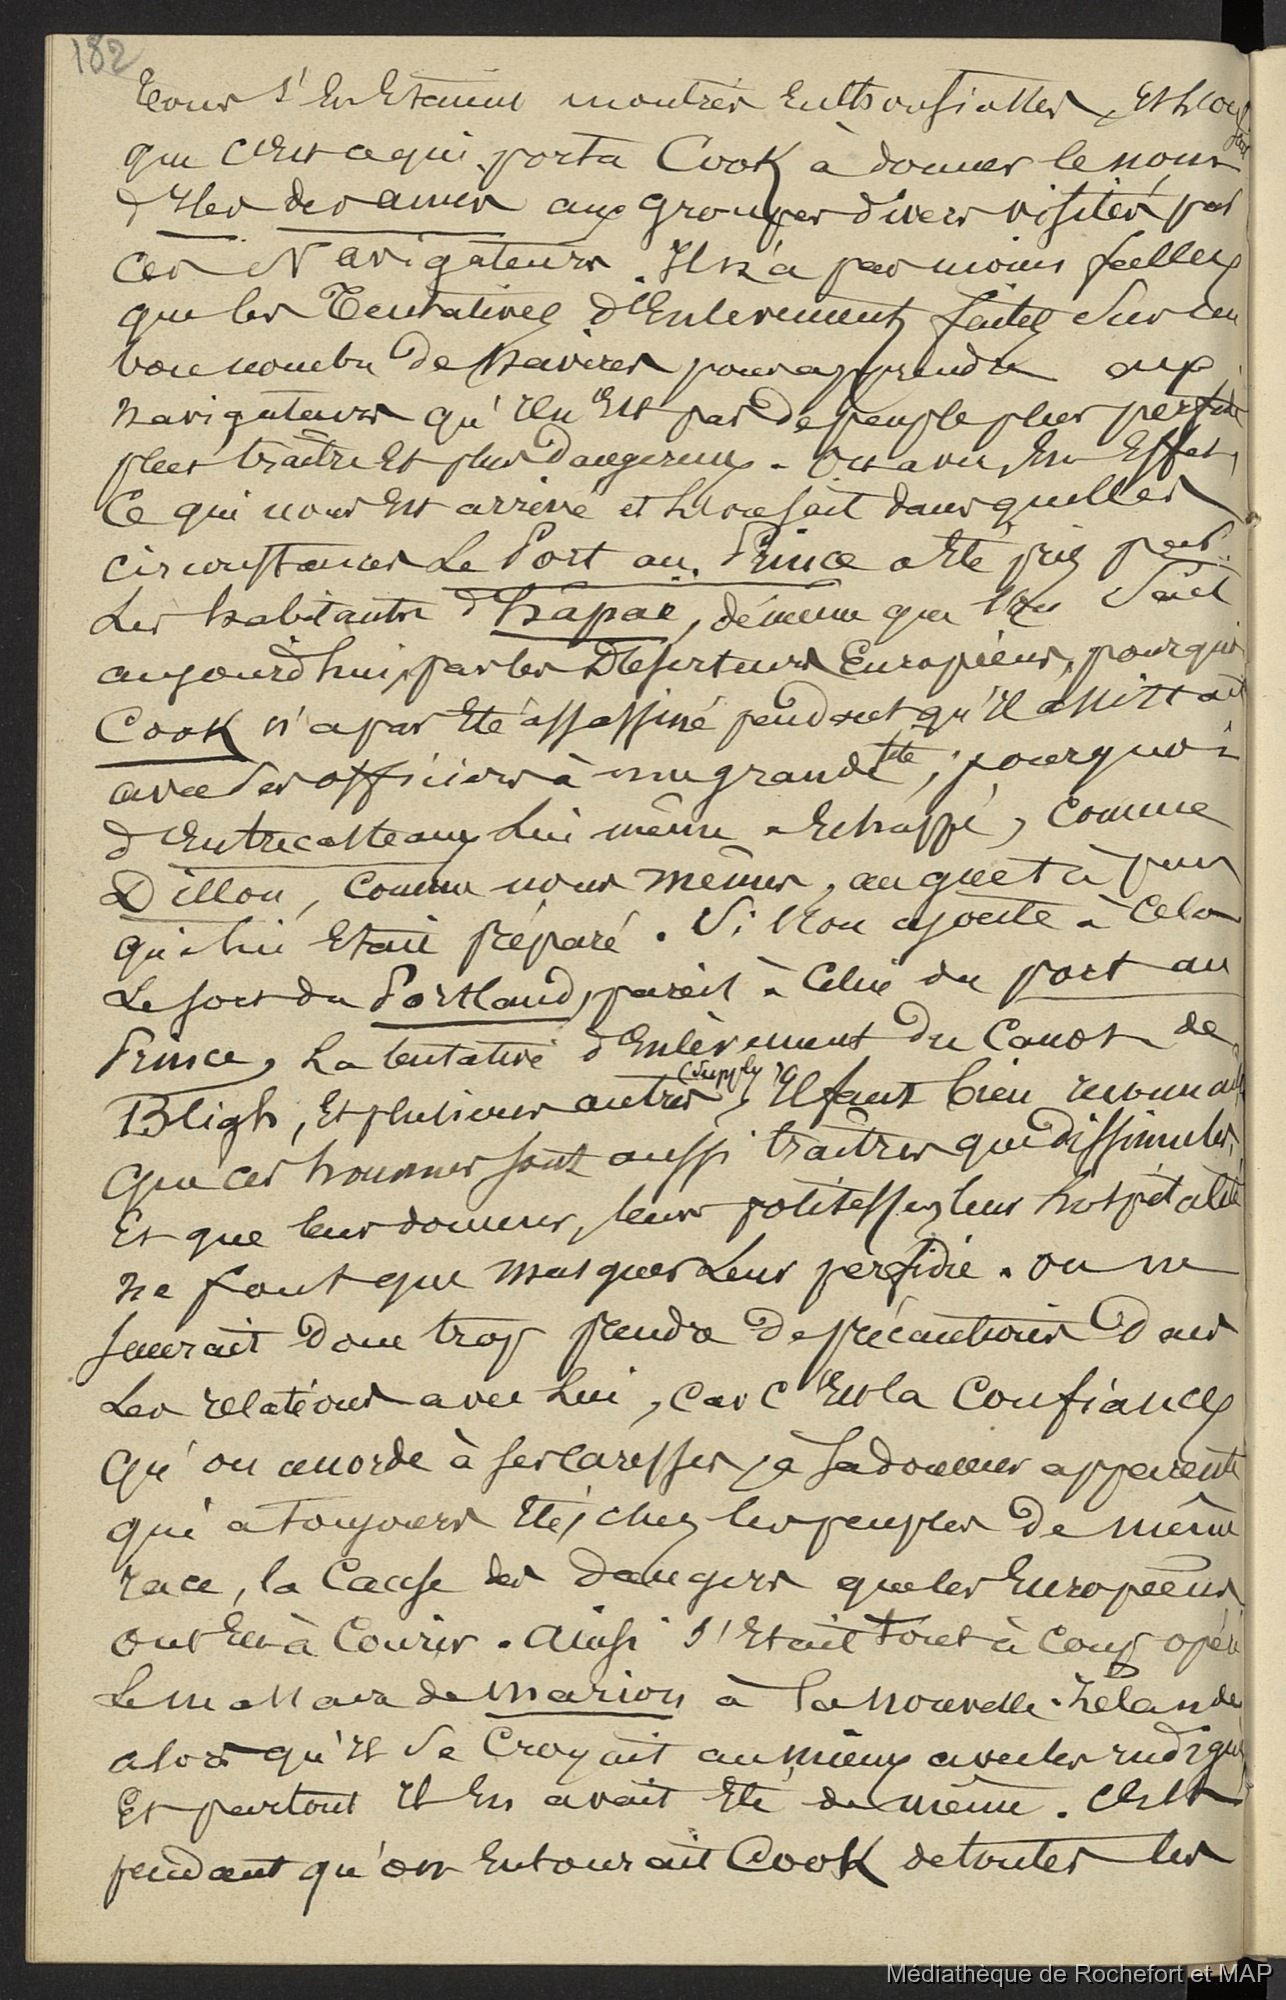 182
Tous s'en étaient montrés enthousiastes, et l'on sait
que c'est ce qui porta Cook à donner le nom
d'Iles des amis aux groupes divers visités par
ces Navigateurs. Il n'a pas moins fallu
que les Tentatives d'Enlèvement faites sur un
bon nombre de navires pour apprendre aux
navigateurs qu'il n'est pas de peuple plus perfide
plus traître et plus dangereux. On a vu, en Effet,
Ce qui nous est arrivé et l'on sait dans quelles
circonstances Le Port au Prince a été pris par
Les habitants d'hapaë, de même que l'on Sait
aujourd'hui, par les Déserteurs Européens, pourquoi
Cook n'a pas été assassiné pendant qu'il assistait
avec ses officiers à une grande fête, pourquoi
d'Entrecasteaux lui même a échappé, comme
Dillon, comme nous mêmes, au guet à pens
qui lui était préparé. Si l'on ajoute à Cela
Le sort du Portland, pareil à Celui du port au
Prince, La tentative d'Enlèvement du Canot de
(Supply)
Bligh, Et plusieurs autres, Il faut bien reconnaitre
Que ces hommes sont aussi traîtres que dissimulés,
Et que leurs douceurs, leurs politesses, leur hospitalité
ne font que masquer Leur perfidie. On ne
saurait donc trop prendre de précautions Dans
Les relations avec Lui, Car C'est la Confiance
Qu'on accorde à ses caresses, à sa douceur apparente
qui a toujours été, chez les peuples de même
race, la Cause des Dangers que les Européens
ont eu à Courir. Ainsi s'était tout à coup opéré
Le massacre de Marion à la nouvelle-Zélande
alors qu'il Se Croyait au mieux avec les indigènes
Et partout il en avait été de même. C'est
pendant qu'on Entourait Cook de toutes les
Médiathèque de Rochefort et MAP